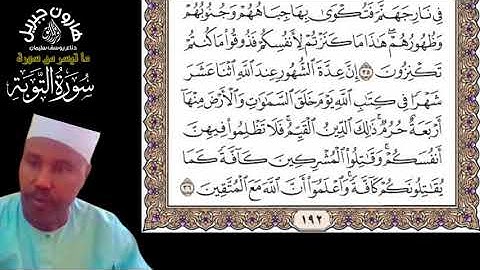 هارون جبريل
دفاع يوسف سليمان
ما تيسر من سورة
سورة التوبة
فِي نَارِ جَهَنَّمَ فَتُكْوَىٰ بِهَا جِبَاهُهُمْ وَجُنُوبُهُمْ
وَظُهُورُهُمْ ۖ هَٰذَا مَا كَنَزْتُمْ لِأَنفُسِكُمْ فَذُوقُوا مَا كُنتُمْ
تَكْنِزُونَ ٣٥ إِنَّ عِدَّةَ الشُّهُورِ عِندَ اللَّهِ اثْنَا عَشَرَ
شَهْرًا فِي كِتَابِ اللَّهِ يَوْمَ خَلَقَ السَّمَاوَاتِ وَالْأَرْضَ مِنْهَا
أَرْبَعَةٌ حُرُمٌ ۚ ذَٰلِكَ الدِّينُ الْقَيِّمُ ۚ فَلَا تَظْلِمُوا فِيهِنَّ
أَنفُسَكُمْ ۚ وَقَاتِلُوا الْمُشْرِكِينَ كَافَّةً كَمَا
يُقَاتِلُونَكُمْ كَافَّةً ۚ وَاعْلَمُوا أَنَّ اللَّهَ مَعَ الْمُتَّقِينَ ٣٦
١٩٢